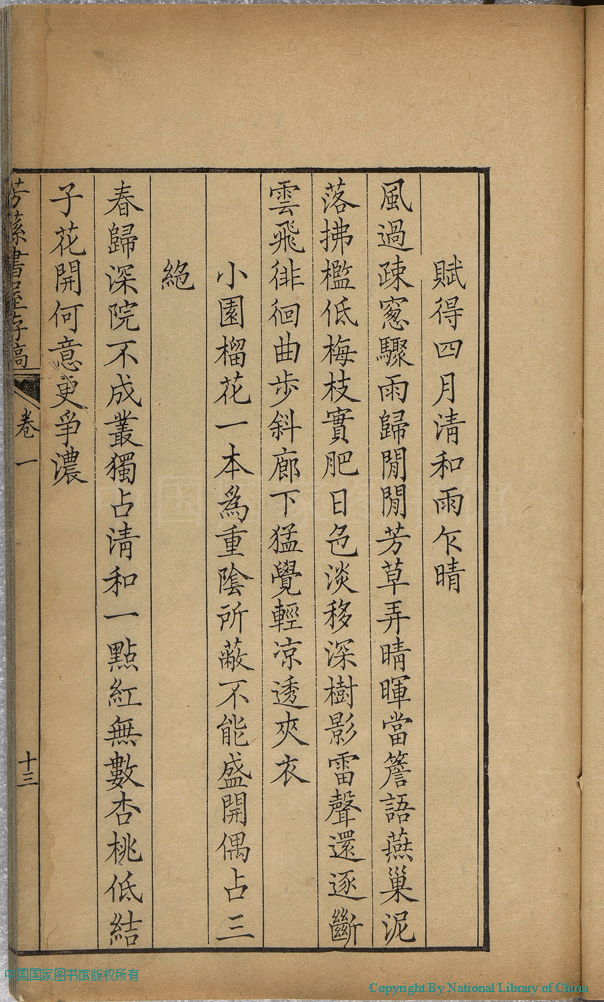 賦得四月清和雨乍晴
風過疎窻驟雨歸閒閒芳草弄晴暉當簷語燕巢泥
落拂檻低梅枝實肥日色淡移深樹影雷聲還逐斷
雲飛徘徊曲步斜廊下猛覺輕凉透夾衣
小園榴花一本為重陰所蔽不能盛開偶占三
絶
春歸深院不成叢獨占清和一點紅無數杏桃低結
子花開何意更爭濃
芳蓀書屋存稿 卷一 十三
中国国家图书馆版权所有
Copyright By National Library of China